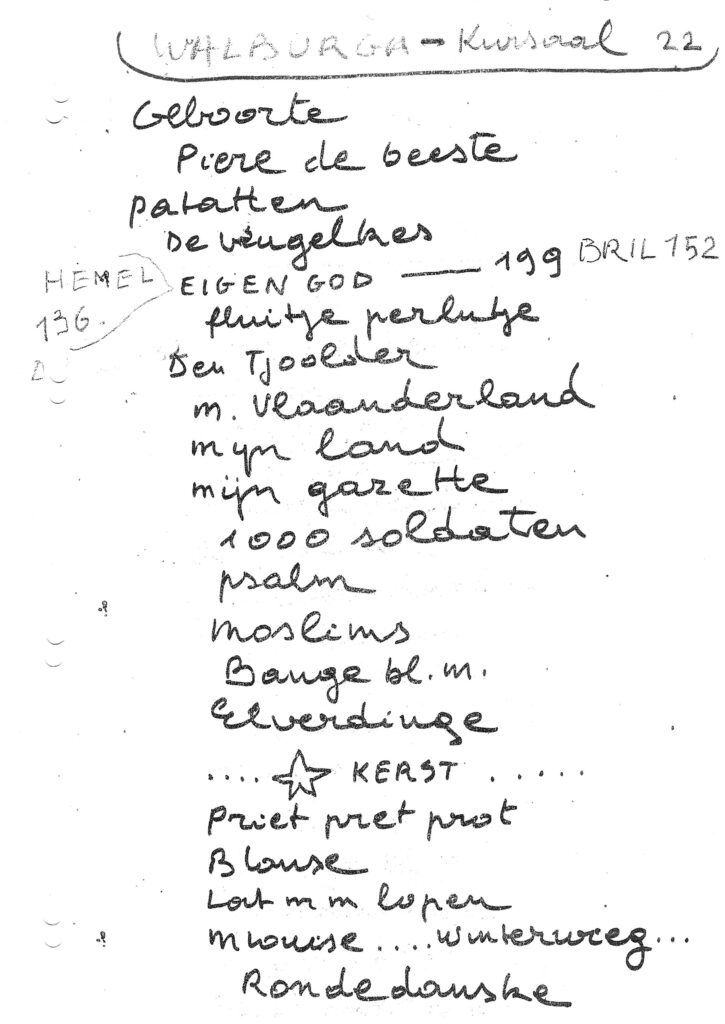 WALBURGA - Kursaal 22
Geboorte
Piere de beeste
patatten
De veugelkes
HEMEL EIGEN GOD — 199 BRIL 152
136.
fluitje perlutje
D
Den Tjoolder
m. Vlaanderland
myn land
mijn gazette
1000 soldaten
psalm
Moslims
Bange bl. m.
Elverdinge
.... ☆ KERST .....
Priet pret prot
Blouse
Lat m m lopen
Mlouise .... Winterwieg...
Rondedanske